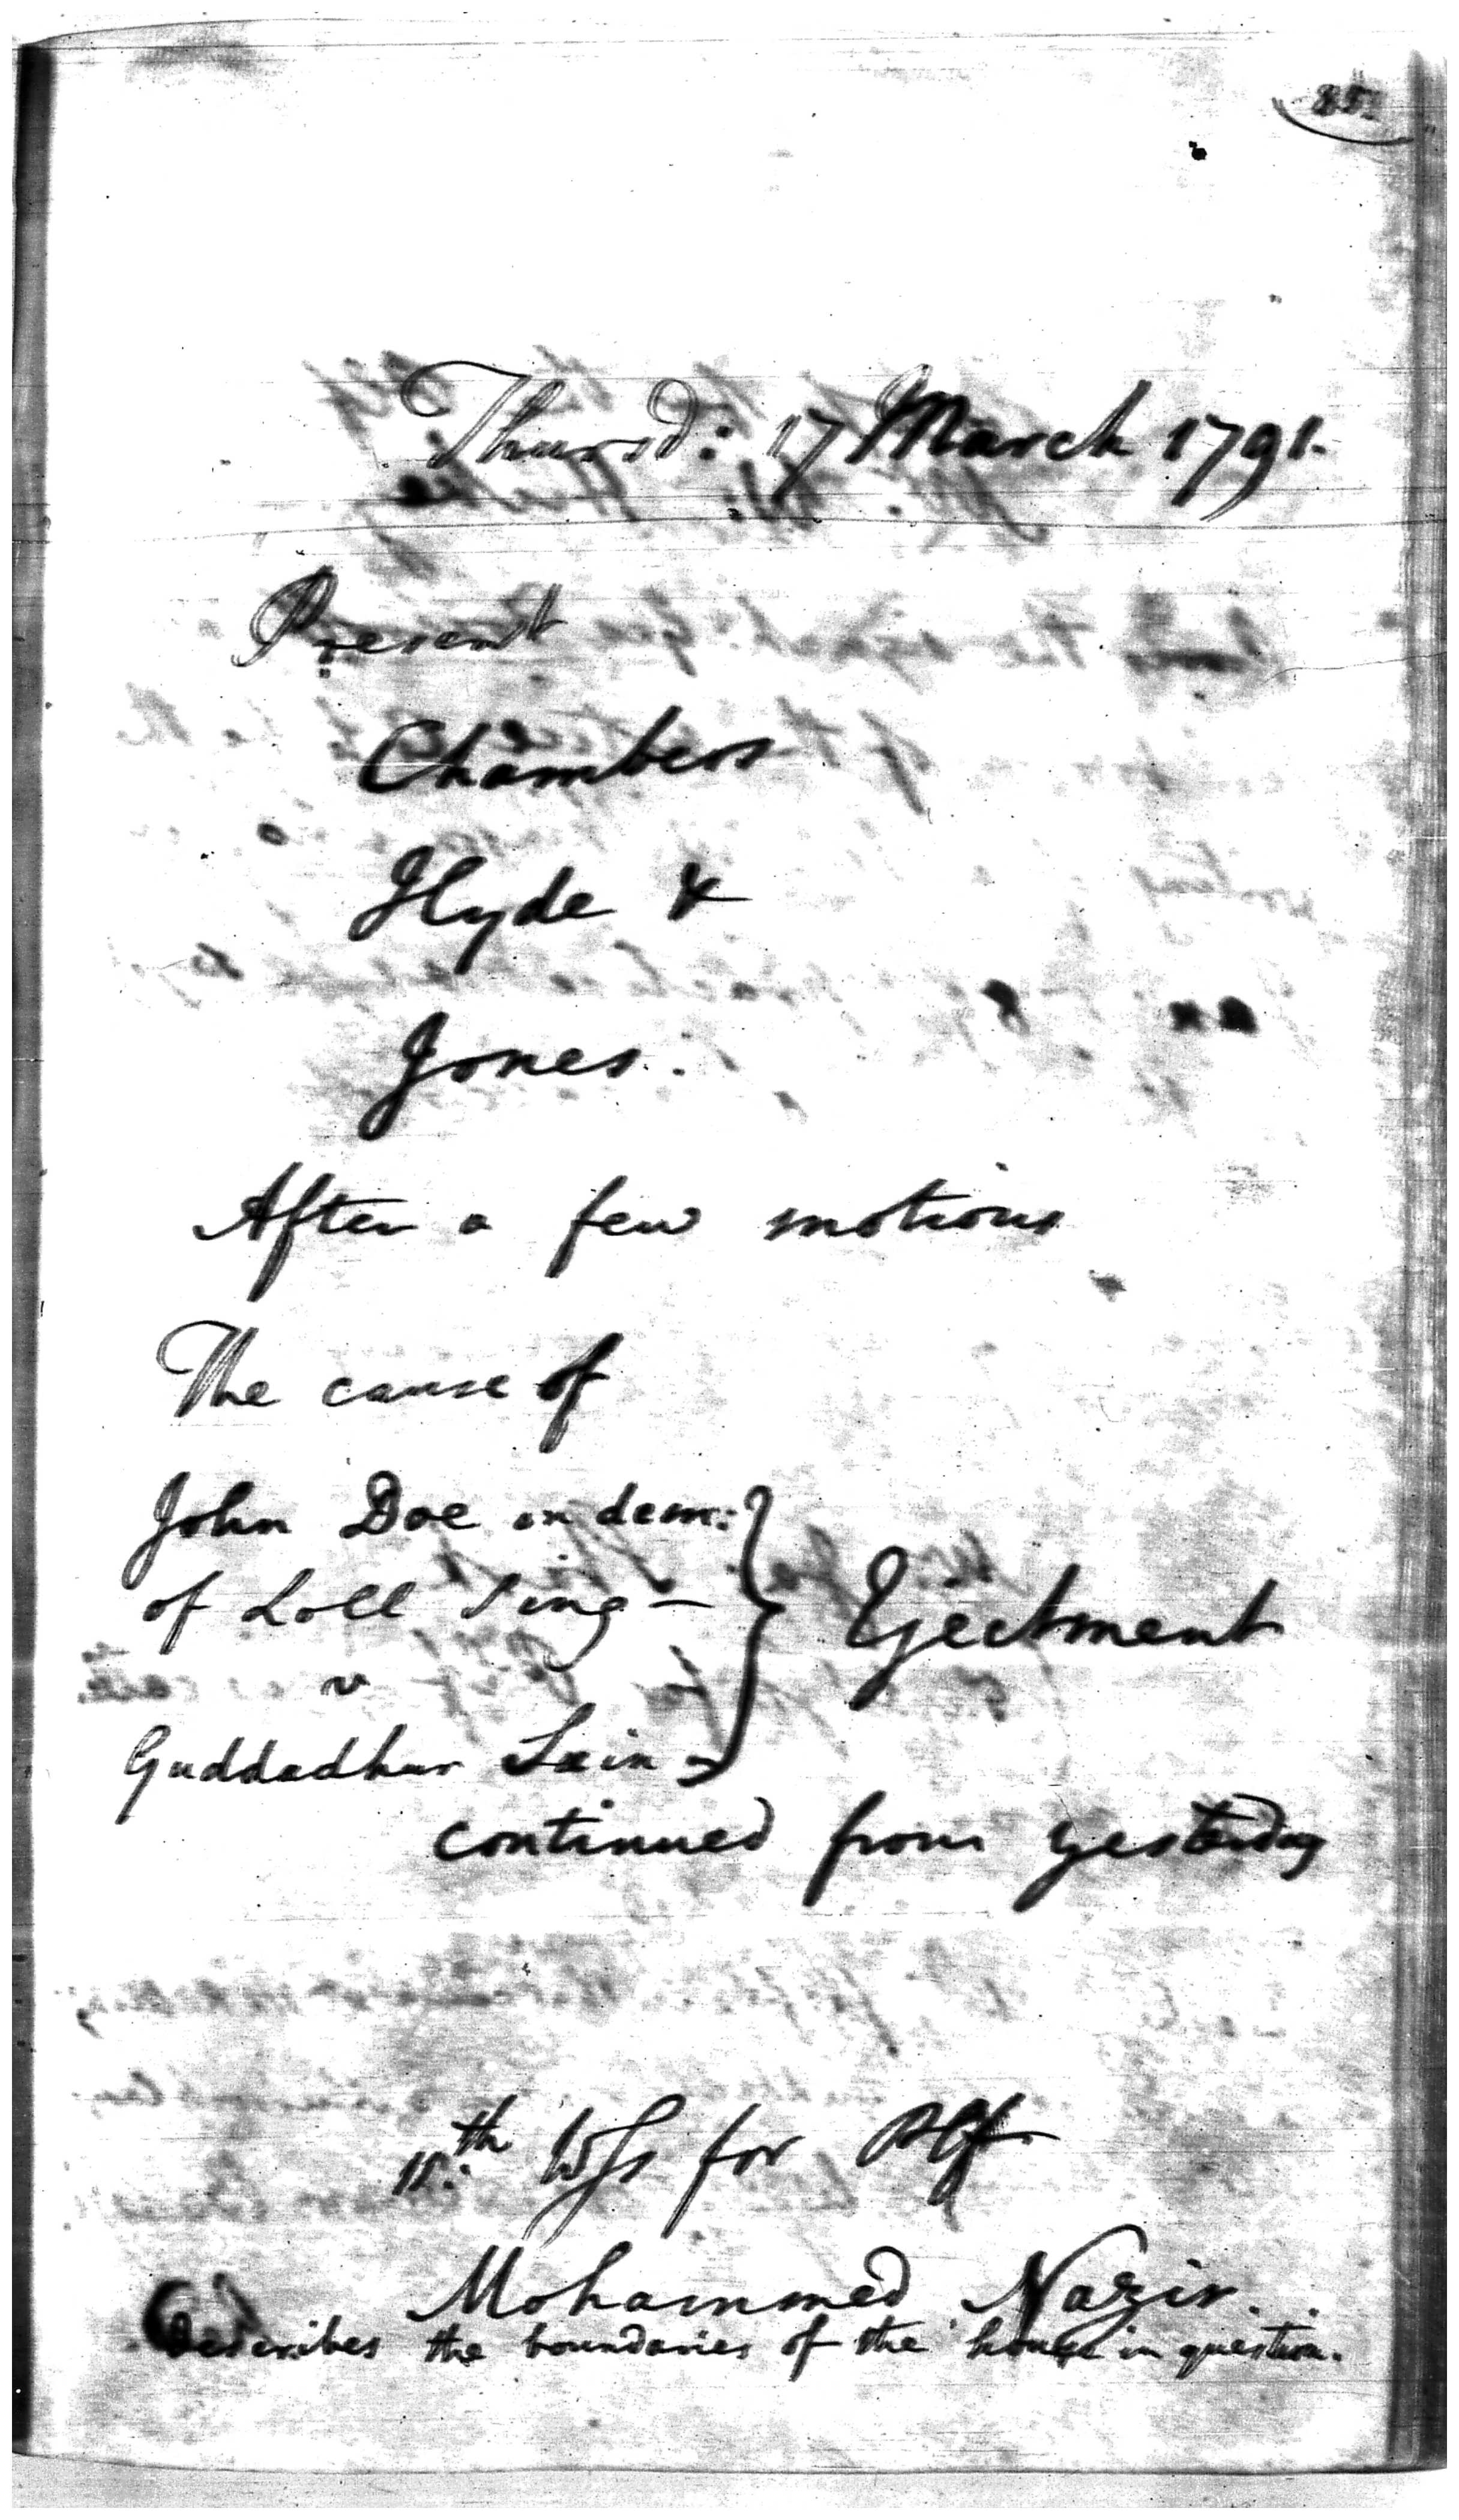 85
Thursd: 17 March 1791.
Present
Chambers
Hyde &
Jones.
After a few motions
The cause of
John Doe on dem:
of Loll Sing —
v
Guddadhur Sein
Ejectment
continued from yesterday
th Wss for Plf.
Mohammed Nazir.
Describes the boundaries of the house in question.